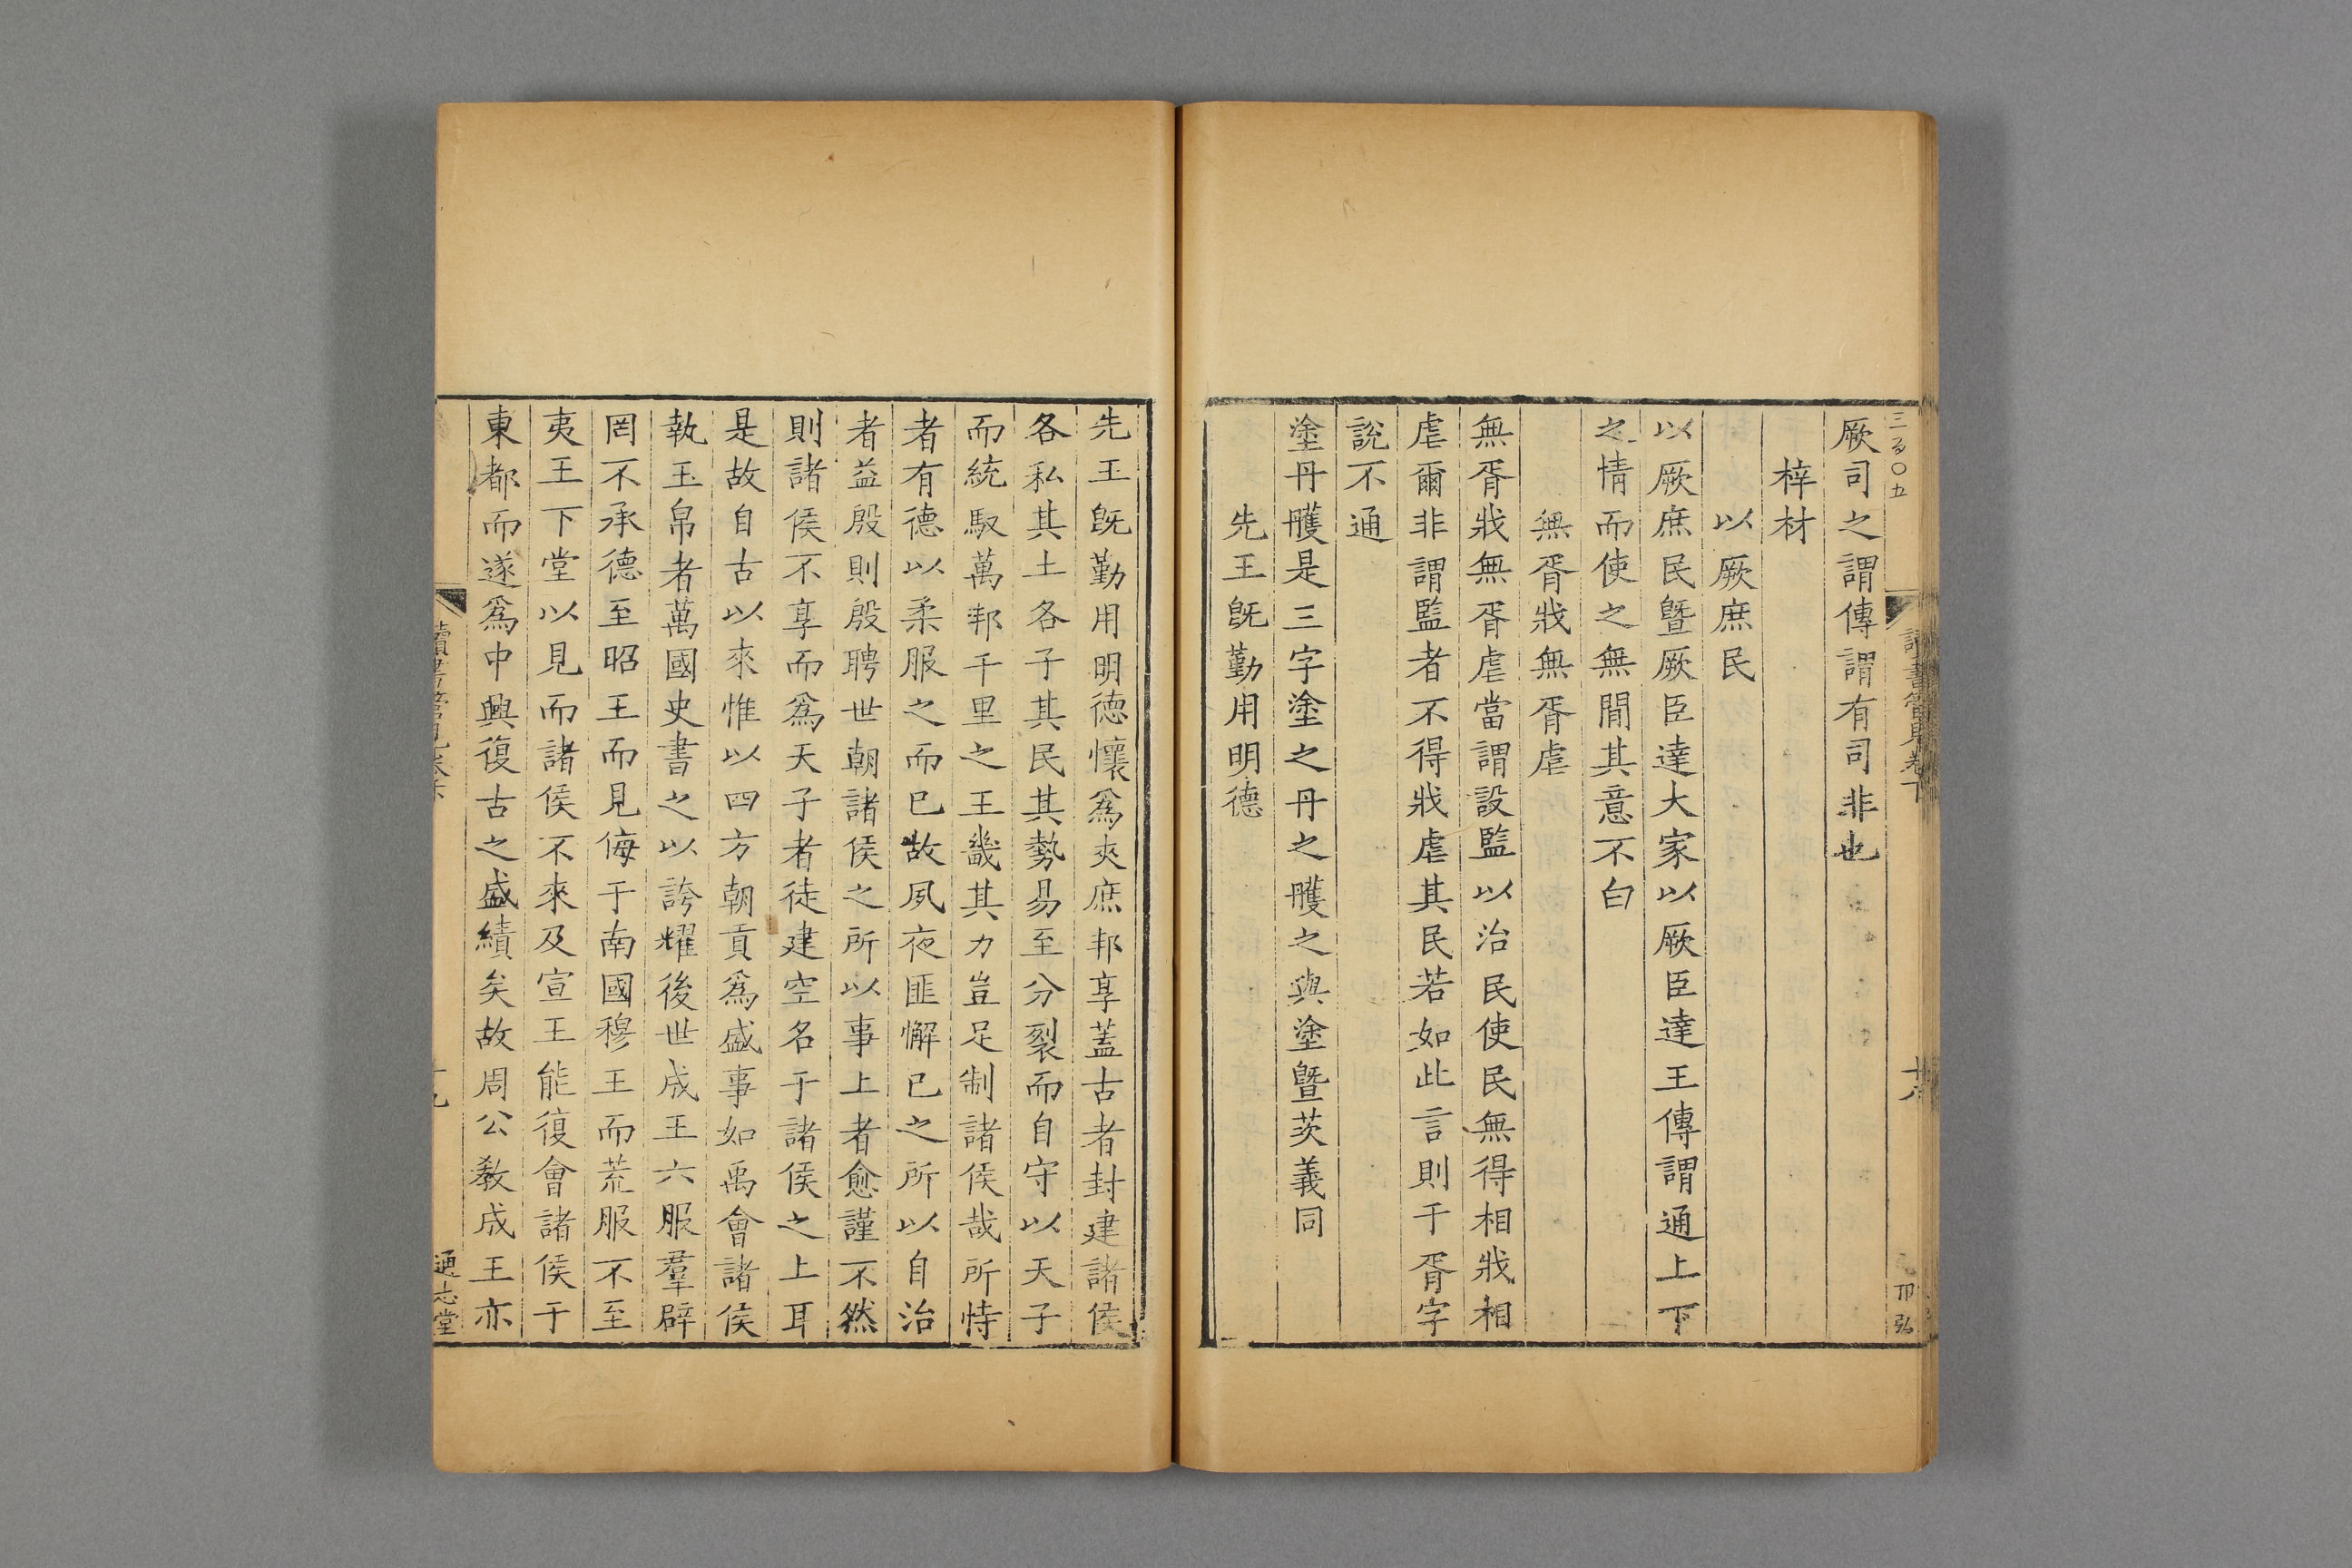 厥司之謂傳謂有司非也
梓材
以厥庶民
以厥庶民曁厥臣達大家以厥臣達王傳謂通上下
之情而使之無閒其意不白
無胥戕無胥虐
無胥戕無胥虐當謂設監以治民使民無得相戕相
虐爾非謂監者不得戕虐其民若如此言則于胥字
說不通
塗丹雘是三字塗之丹之雘之與塗曁茨義同
先王旣勤用明德
先王旣勤用明德懷爲夾庶邦享蓋古者封建諸侯
各私其土各子其民其勢易至分裂而自守以天子
而統馭萬邦千里之王畿其力豈足制諸侯哉所恃
者有德以柔服之而已故夙夜匪懈已之所以自治
者益殷則殷聘世朝諸侯之所以事上者愈謹不然
則諸侯不享而爲天子者徒建空名于諸侯之上耳
是故自古以來惟以四方朝貢爲盛事如禹會諸侯
執玉帛者萬國史書之以誇耀後世成王六服羣辟
罔不承德至昭王而見侮于南國穆王而荒服不至
夷王下堂以見而諸侯不來及宣王能復會諸侯于
東都而遂爲中興復古之盛績矣故周公敎成王亦
通志堂